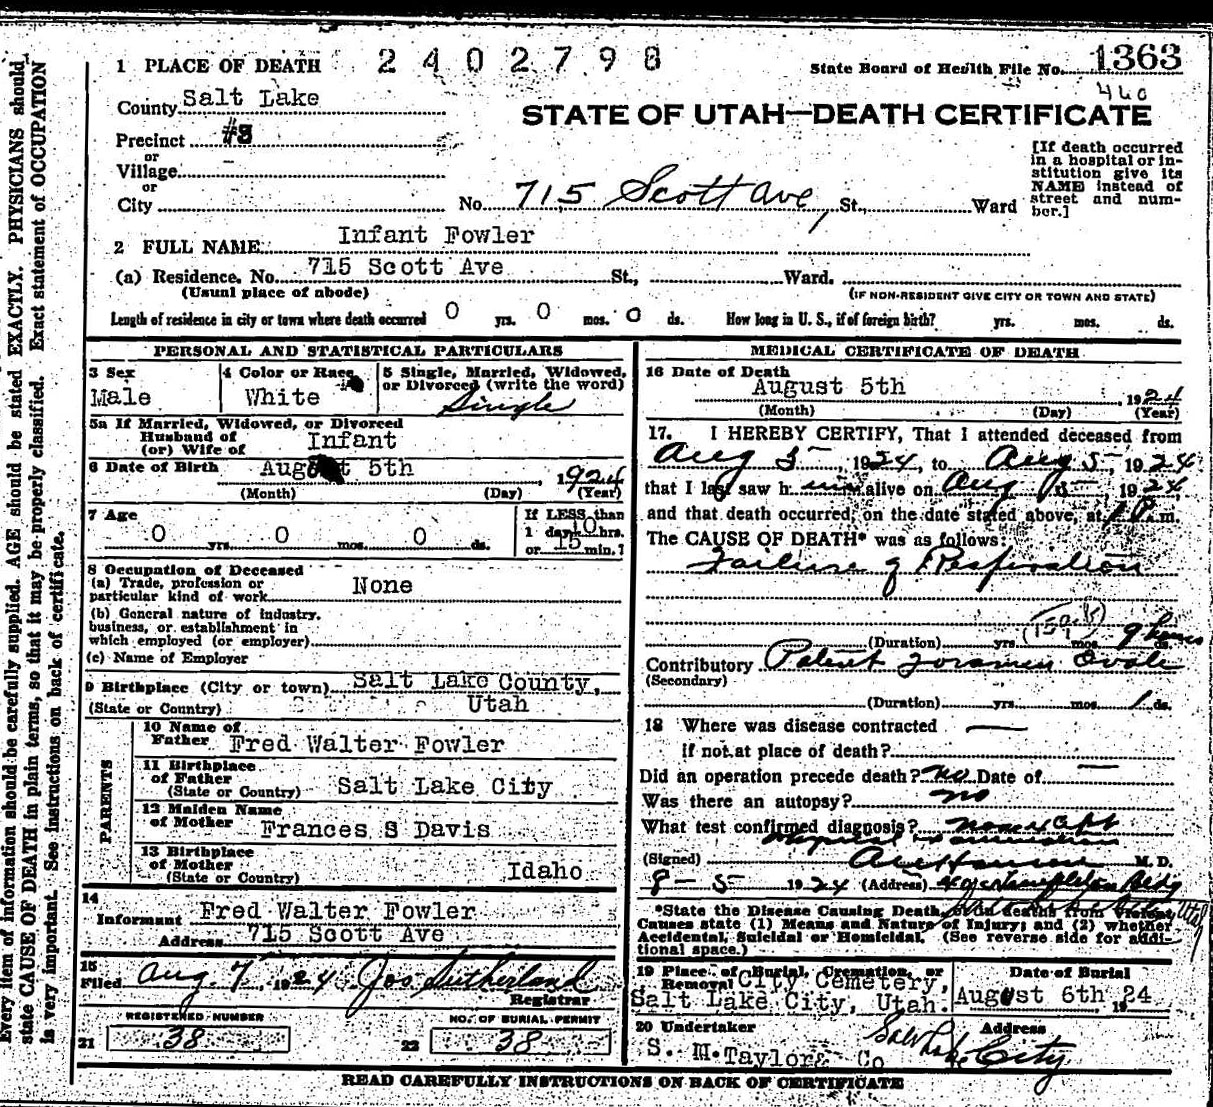 1 PLACE OF DEATH 2402798 State Board of Health File No. 1363
460
County Salt Lake
STATE OF UTAH—DEATH CERTIFICATE
Precinct #3
or
Village -
or
City No. 715 Scott Ave, St., Ward
[If death occurred
in a hospital or in-
stitution give its
NAME instead of
street and num-
ber.]
2 FULL NAME Infant Fowler
(a) Residence. No. 715 Scott Ave St., Ward.
(Usual place of abode) (IF NON-RESIDENT GIVE CITY OR TOWN AND STATE)
Length of residence in city or town where death occurred 0 yrs. 0 mos. 0 ds. How long in U. S., if of foreign birth? yrs. mos. ds.
PERSONAL AND STATISTICAL PARTICULARS
3 Sex
Male
4 Color or Race
White
5 Single, Married, Widowed,
or Divorced (write the word)
Single
5a If Married, Widowed, or Divorced
Husband of
(or) Wife of Infant
6 Date of Birth August 5th, 1924
(Month) (Day) (Year)
7 Age
0 yrs. 0 mos. 0 ds.
If LESS than
1 day 10 hrs.
or 15 min.?
8 Occupation of Deceased
(a) Trade, profession or
particular kind of work None
(b) General nature of industry,
business, or establishment in
which employed (or employer)
(c) Name of Employer
9 Birthplace (City or town) Salt Lake County,
(State or Country) Utah
PARENTS
10 Name of
Father Fred Walter Fowler
11 Birthplace
of Father
(State or Country) Salt Lake City
12 Maiden Name
of Mother Frances S Davis
13 Birthplace
of Mother
(State or Country) Idaho
14
Informant Fred Walter Fowler
Address 715 Scott Ave
15
Filed Aug. 7 1924 Jos Sutherland
Registrar
REGISTERED NUMBER
21 38
NO. OF BURIAL PERMIT
22 38
MEDICAL CERTIFICATE OF DEATH
16 Date of Death
August 5th, 1924
(Month) (Day) (Year)
17. I HEREBY CERTIFY, That I attended deceased from
Aug 5, 1924, to Aug 5, 1924
that I last saw h im alive on Aug 5 1924
and that death occurred, on the date stated above, at m.
The CAUSE OF DEATH* was as follows:
Failure of Respiration
(Duration) yrs. mos. 9 hours ds.
Contributory Patent Foramen Ovale
(Secondary)
(Duration) yrs. mos. 1 ds.
18 Where was disease contracted —
if not at place of death?
Did an operation precede death? no Date of —
Was there an autopsy? no
What test confirmed diagnosis?
(Signed) M. D.
8-5 1924 (Address) Templeton Bldg
*State the Disease Causing Death, or in deaths from Violent
Causes state (1) Means and Nature of Injury; and (2) whether
Accidental, Suicidal or Homicidal. (See reverse side for addi-
tional space.)
19 Place of Burial, Cremation, or
Removal City Cemetery,
Salt Lake City, Utah.
Date of Burial
August 6th 1924
20 Undertaker
S. M. Taylor & Co
Address
Salt Lake City
READ CAREFULLY INSTRUCTIONS ON BACK OF CERTIFICATE
Every item of information should be carefully supplied. AGE should be stated EXACTLY. PHYSICIANS should
state CAUSE OF DEATH in plain terms, so that it may be properly classified. Exact statement of OCCUPATION
is very important. See instructions on back of certificate.